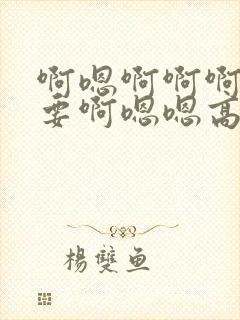 啊嗯啊啊啊
要啊嗯嗯高
楊雙魚